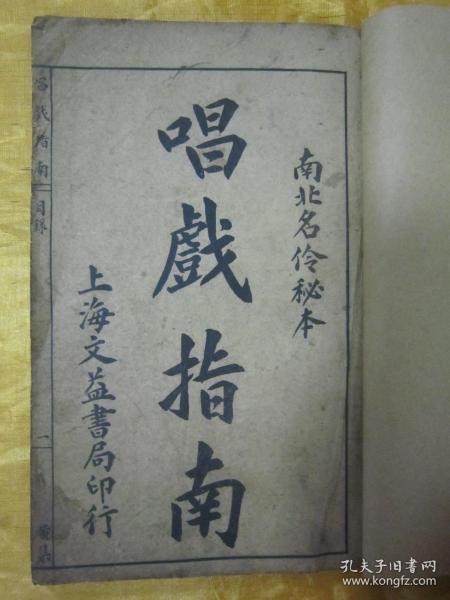 南北名伶秘本
唱戲指南
上海文益書局印行
唱戲指南
目錄
一
孔夫子旧书网
www.kongfz.com